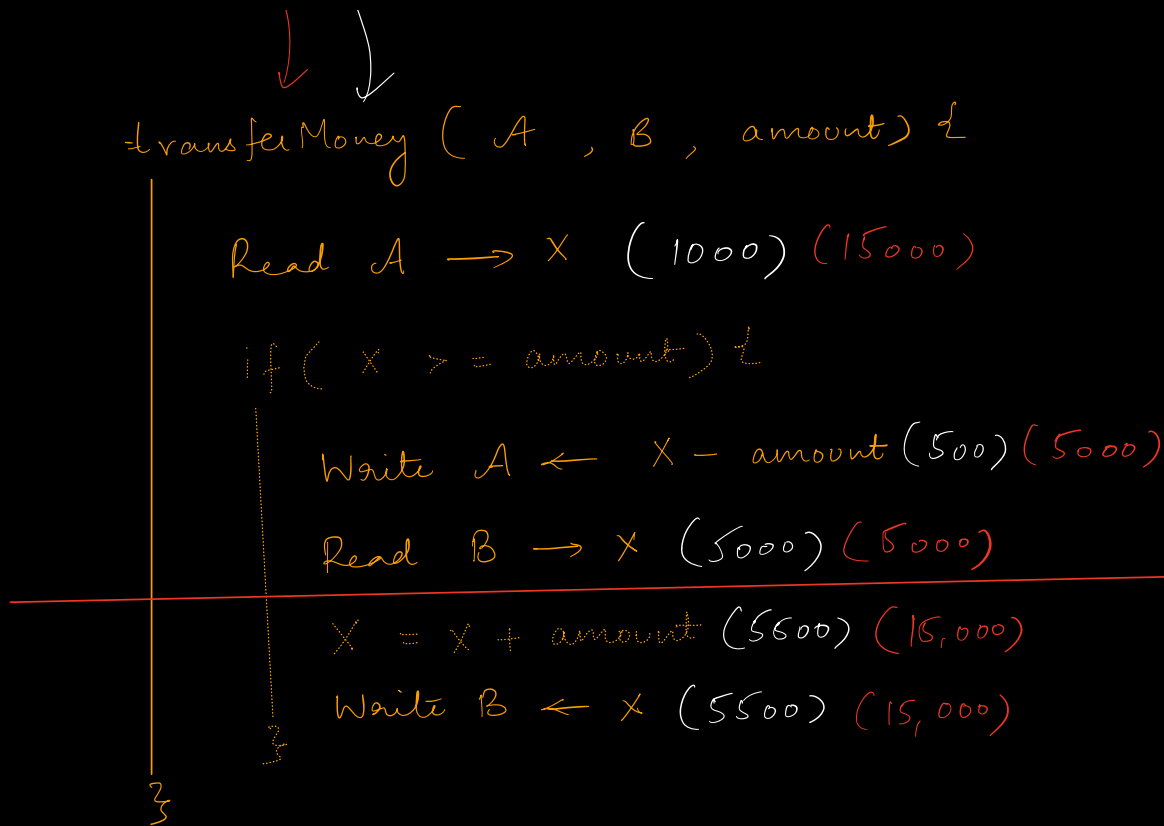 transferMoney ( A , B , amount) {
Read A → X (1000) (15000)
if ( X >= amount) {
Write A ← X - amount (500) (5000)
Read B → X (5000) (5000)
X = X + amount (5500) (15,000)
Write B ← X (5500) (15,000)
}
}